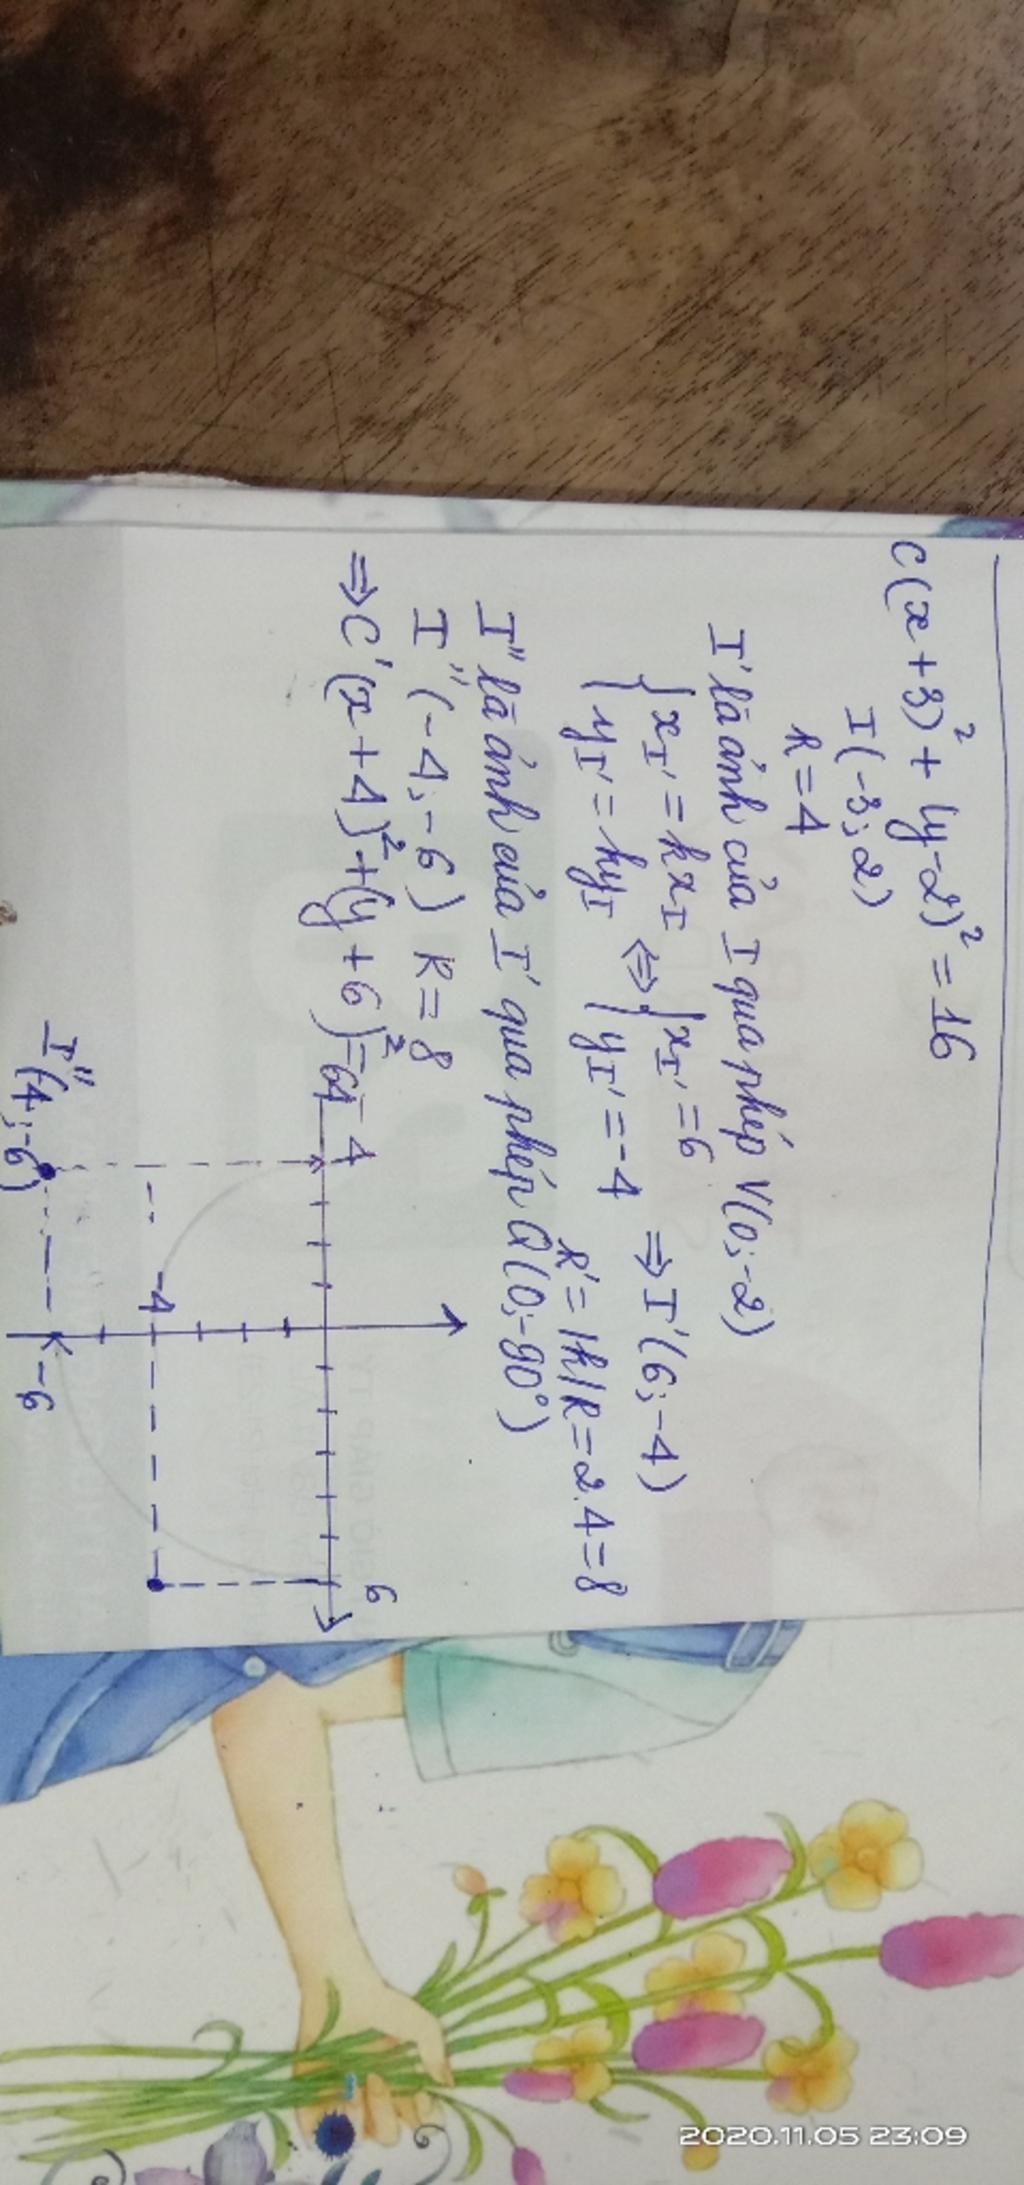 C(x+3)² + (y-2)² = 16
I(-3; 2)
R = 4
I' là ảnh của I qua phép V(0;-2)
{x_I' = kx_I ⇔ {x_I' = 6 ⇒ I'(6;-4)
{y_I' = ky_I {y_I' = -4
R' = |k|R = 2.4 = 8
I'' là ảnh của I' qua phép Q(0;-90°)
I''(-4;-6) R = 8
⇒ C'(x+4)² + (y+6)² = 64
-4
6
-4
-6
I''(4;-6)
2020.11.05 23:09